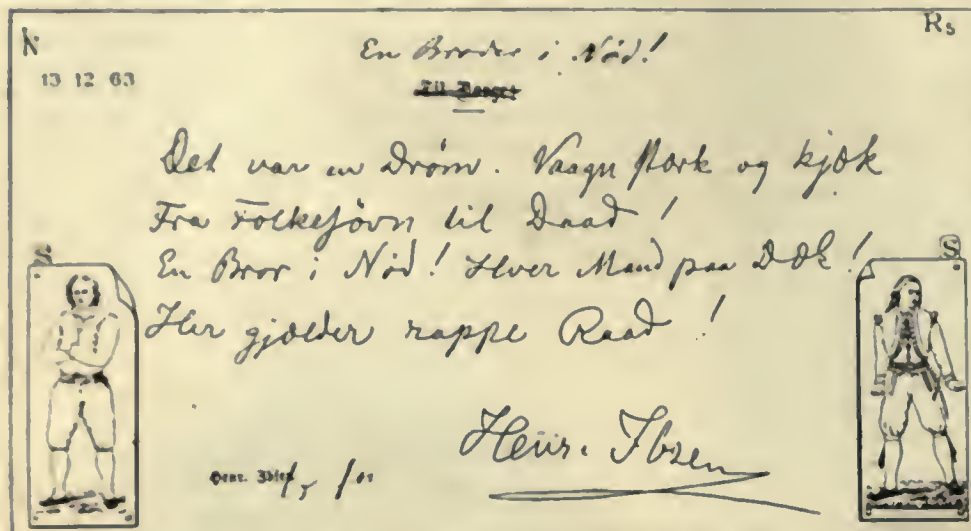 N Rs
13 12 63
En Broder i Nød!
Det var en Drøm. Vaagn stærk og kjæk
Fra Folkesøvn til Daad!
En Bror i Nød! Hver Mand paa Dæk!
Her gjælder rappe Raad!
S S
Henr. Ibsen
Henr. Ibsen